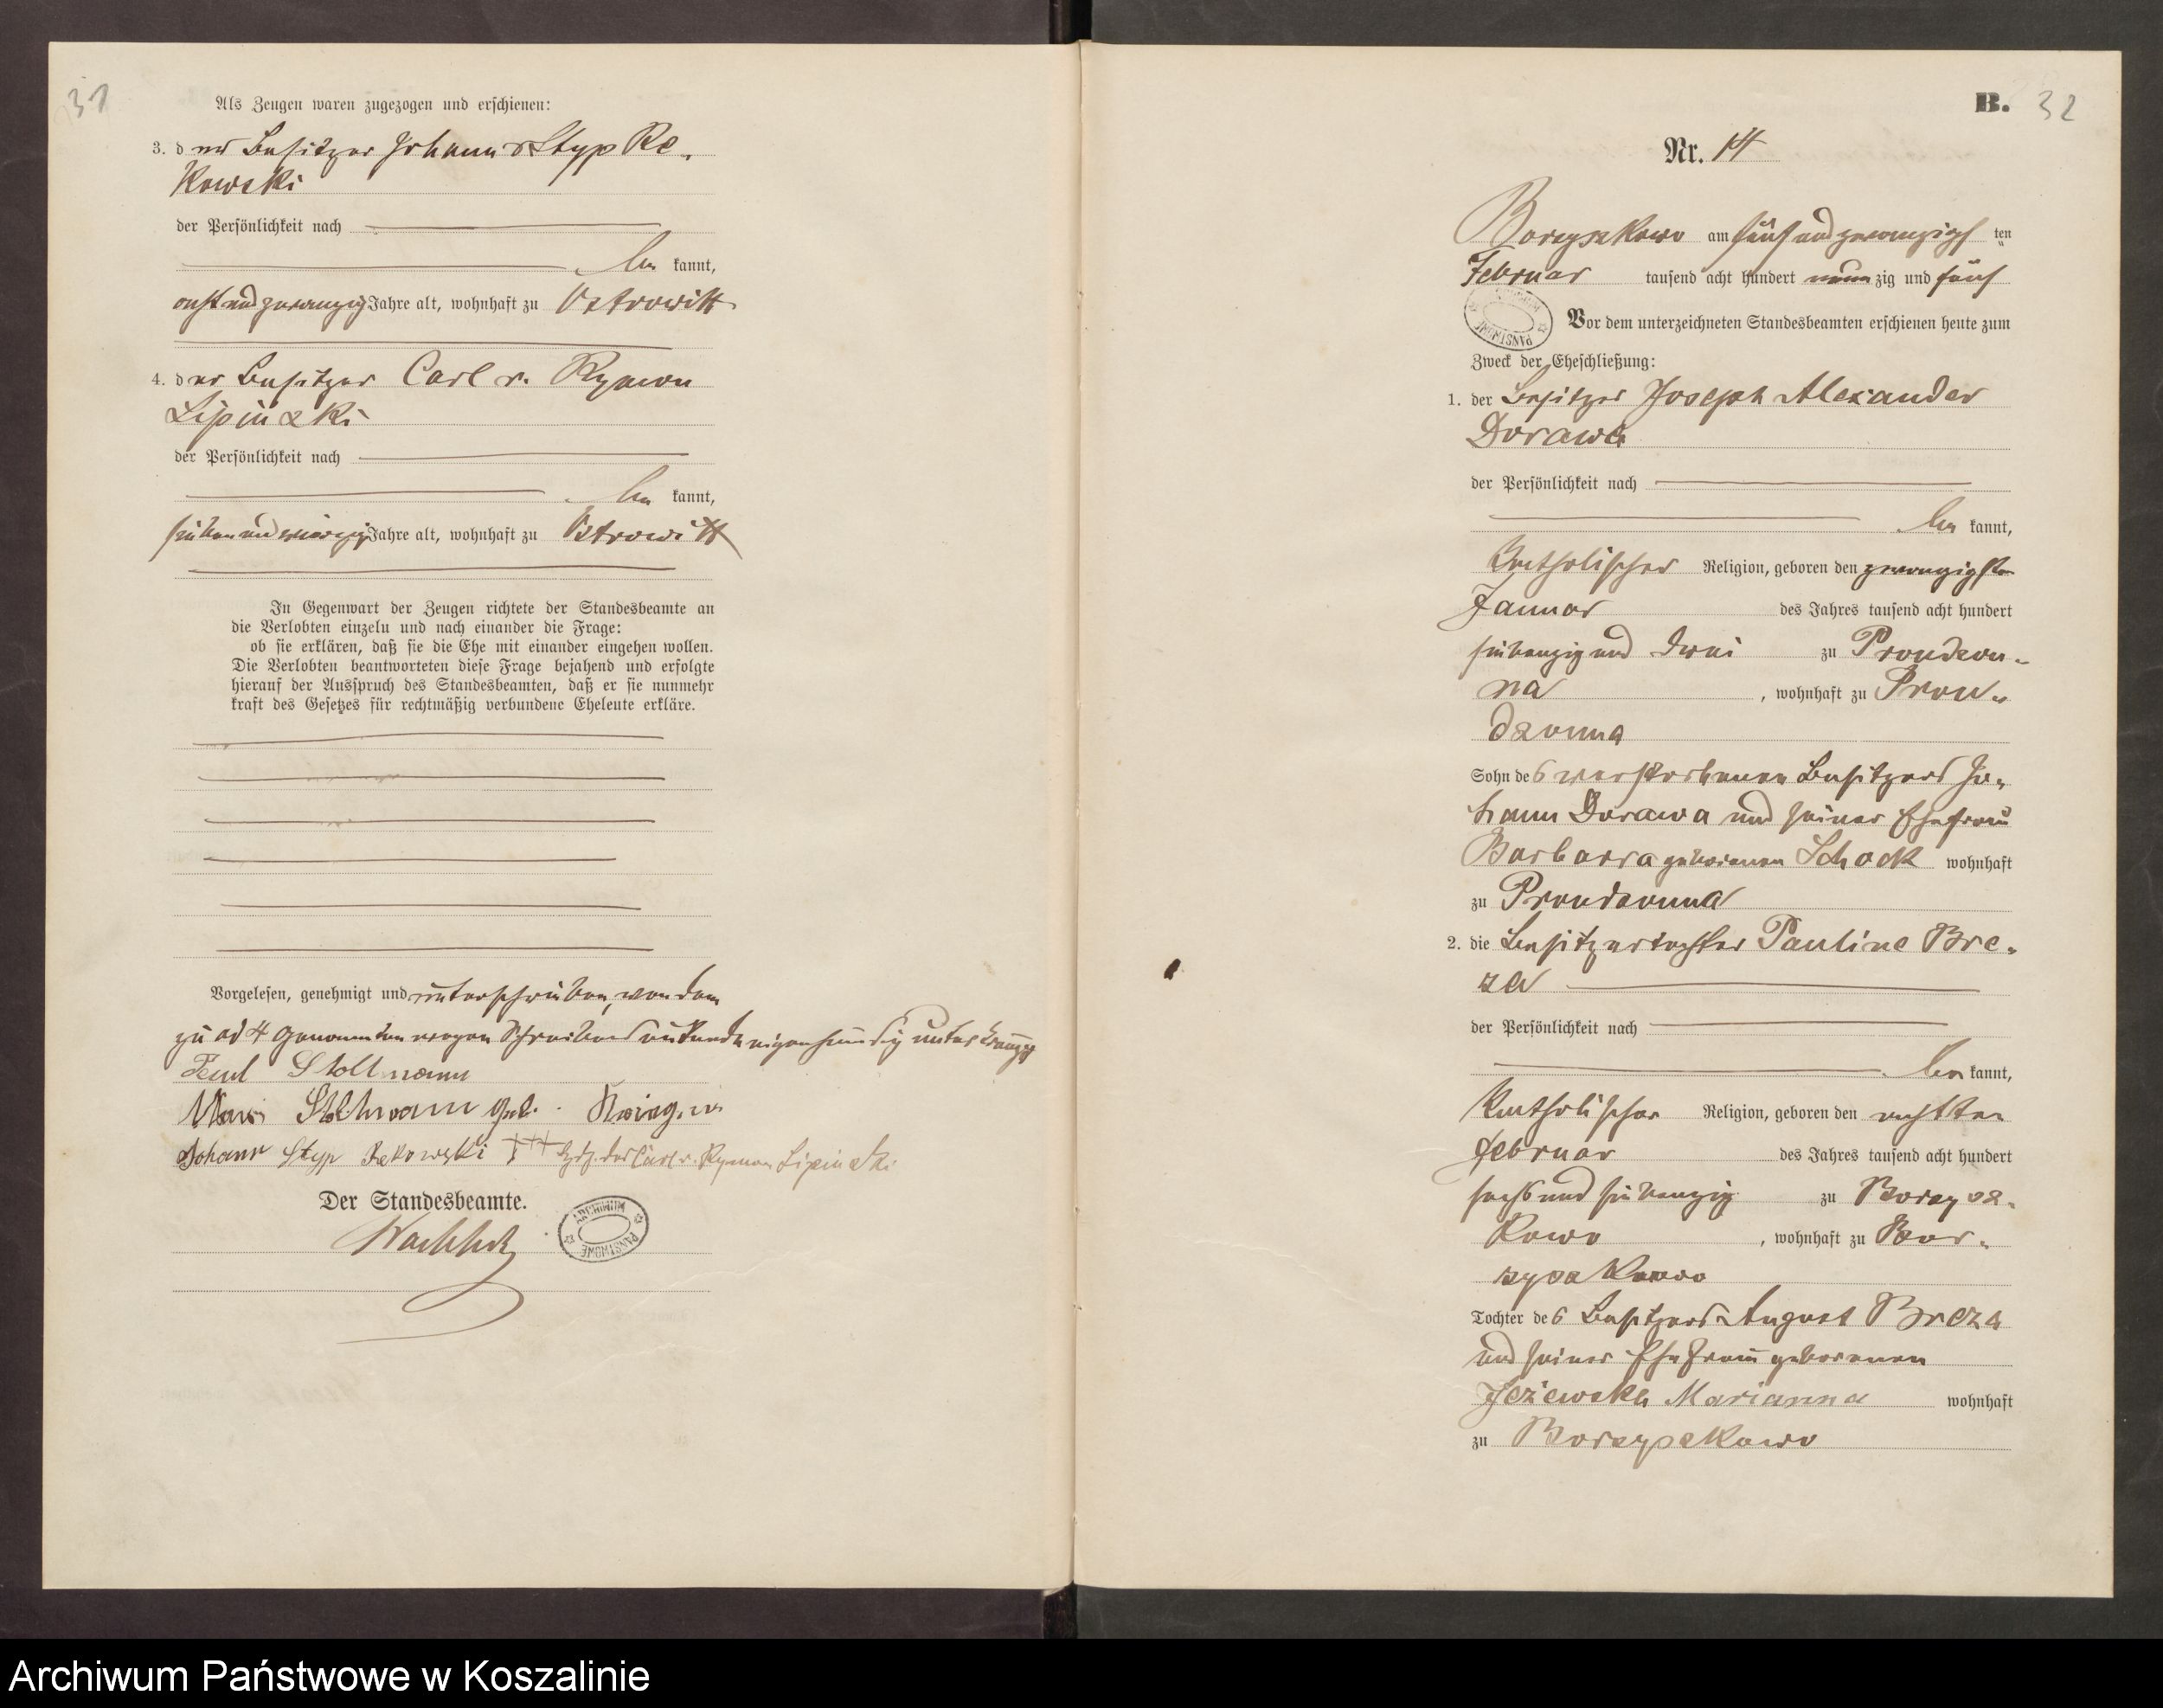 31
Als Zeugen waren zugezogen und erschienen:
3. der Besitzer Johann v Styp Re-
kowski
der Persönlichkeit nach
be kannt,
acht und zwanzig Jahre alt, wohnhaft zu Ostrowitt
4. der Besitzer Carl v. Rymon
Lipinski
der Persönlichkeit nach
be kannt,
sieben und vierzig Jahre alt, wohnhaft zu Ostrowitt
In Gegenwart der Zeugen richtete der Standesbeamte an
die Verlobten einzeln und nach einander die Frage:
ob sie erklären, daß sie die Ehe mit einander eingehen wollen.
Die Verlobten beantworteten diese Frage bejahend und erfolgte
hierauf der Ausspruch des Standesbeamten, daß er sie nunmehr
kraft des Gesetzes für rechtmäßig verbundene Eheleute erkläre.
Vorgelesen, genehmigt und unterschrieben, von dem
zu ad 4 genannten wegen Schreibens unkunde eigenhändig unterkreuzt
Paul Stoltmann
Stoltmann geb.
Johann Styp Rekowski +++ Hdz. des Carl v. Rymon Lipinski
Der Standesbeamte.
ARCHIWUM PAŃSTWOWE
B. 32
Nr. 14
Borzyszkowo am fünf und zwanzigsten
Februar tausend acht hundert neunzig und fünf
PAŃSTWOWE
Vor dem unterzeichneten Standesbeamten erschienen heute zum
Zweck der Eheschließung:
1. der Besitzer Joseph Alexander
Dorawa
der Persönlichkeit nach
be kannt,
katholischer Religion, geboren den zwanzigsten
Januar des Jahres tausend acht hundert
siebenzig und zwei zu Prondzon-
na, wohnhaft zu Pron-
dzonna
Sohn des verstorbenen Besitzers Jo-
hann Dorawa und seiner Ehefrau
Barbara geborenen Schock wohnhaft
zu Prondzonna
2. die Besitzertochter Pauline Bre-
za
der Persönlichkeit nach
be kannt,
katholischer Religion, geboren den achten
Februar des Jahres tausend acht hundert
sechs und siebenzig zu Borzysz-
kowo, wohnhaft zu Bor-
zyszkowo
Tochter des Besitzers August Breza
und seiner Ehefrau geborenen
Jezewska Marianna wohnhaft
zu Borzyszkowo
Archiwum Państwowe w Koszalinie